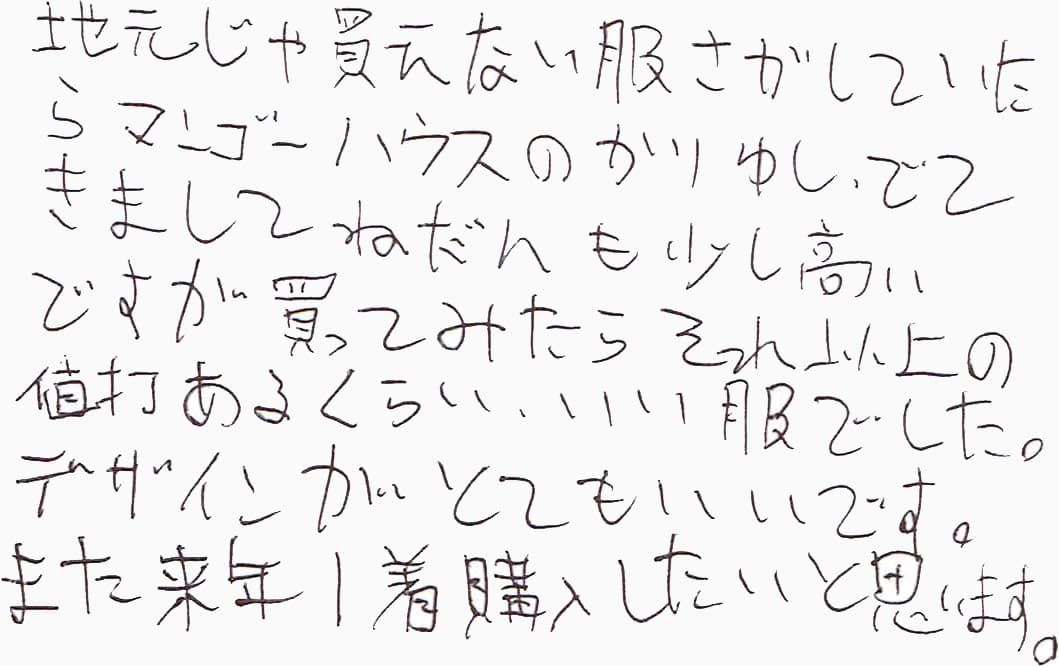 地元じゃ買えない服さがしていた
らマンゴーハウスのかりゆし、でて
きましてねだんも少し高い
ですが買ってみたらそれ以上の
値打あるくらいい、いいい服でした。
デザインがとてもいいです。
また来年1着購入したいと思います。